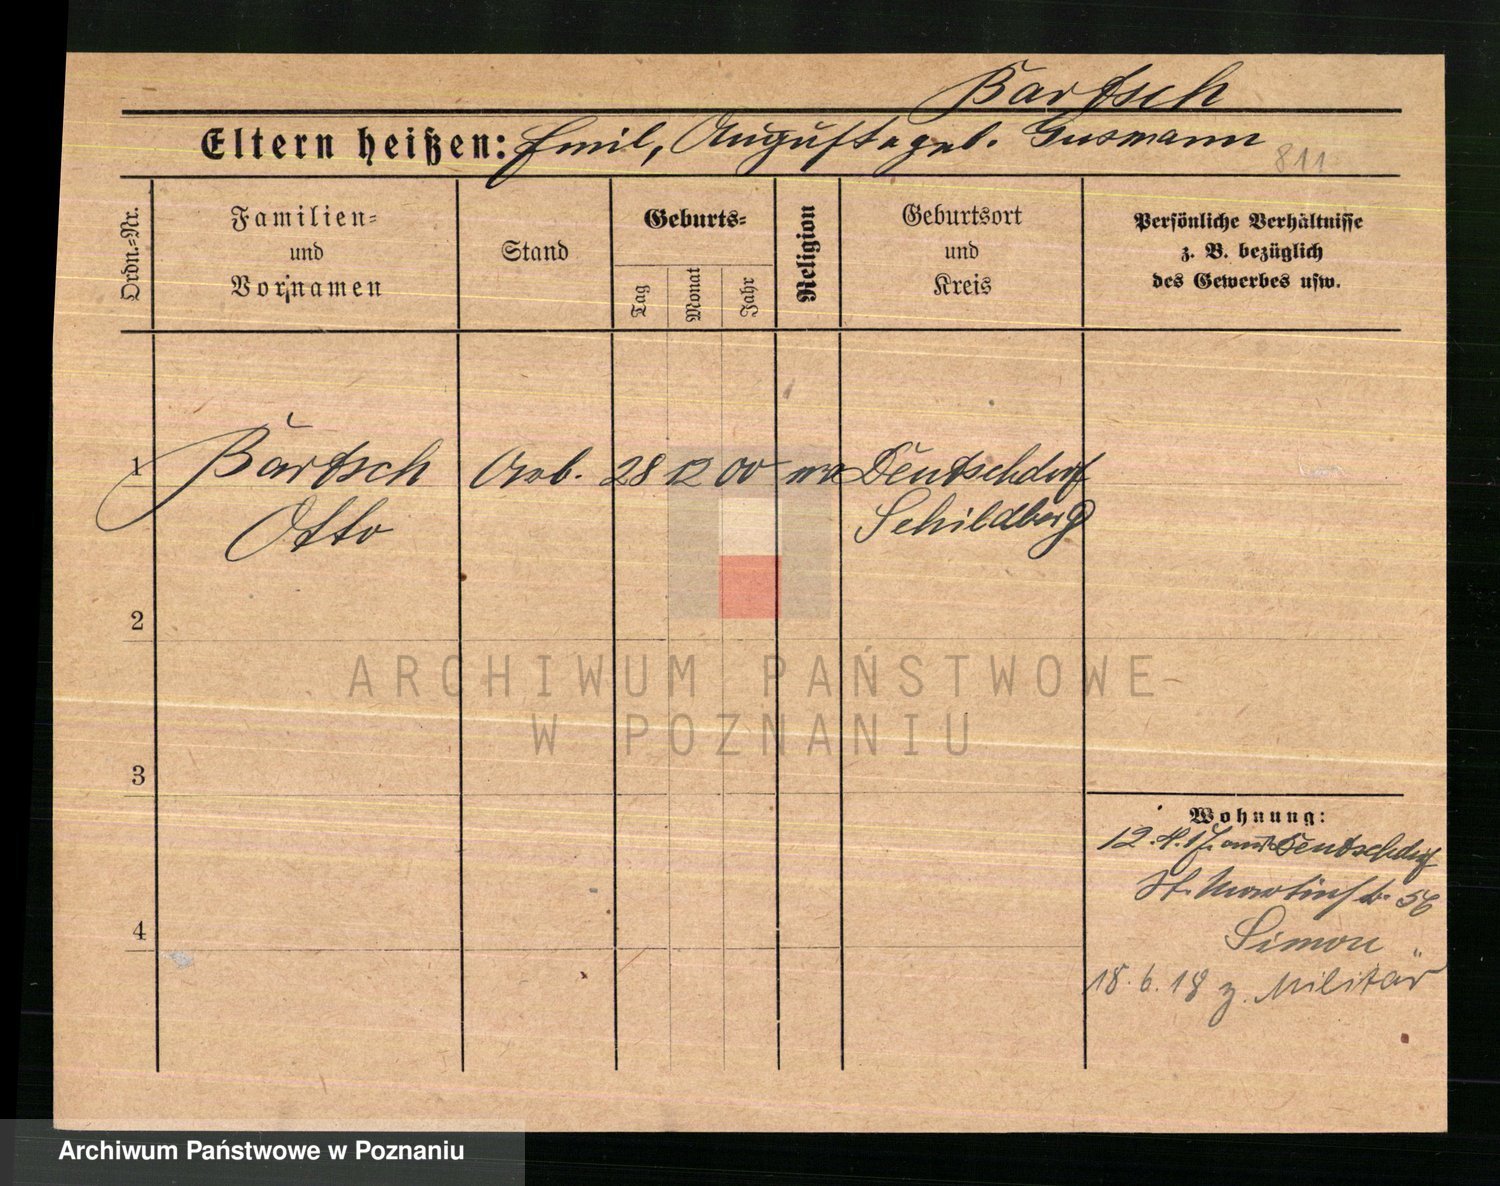 Bartsch
Eltern heißen: Emil, Auguste geb. Gusmann
811
Ordn.-Nr.
Familien-
und
Vornamen
Stand
Geburts-
Tag
Monat
Jahr
Religion
Geburtsort
und
Kreis
Persönliche Verhältnisse
z. B. bezüglich
des Gewerbes usw.
1 Bartsch Arb. 28 12 00 Deutschdorf
Otto Schildberg
2
ARCHIWUM PAŃSTWOWE
W POZNANIU
3
Wohnung:
12.4.17. aus Deutschdorf
St. Martinstr. 56
Simon
4
18.6.18 z. Militär
Archiwum Państwowe w Poznaniu